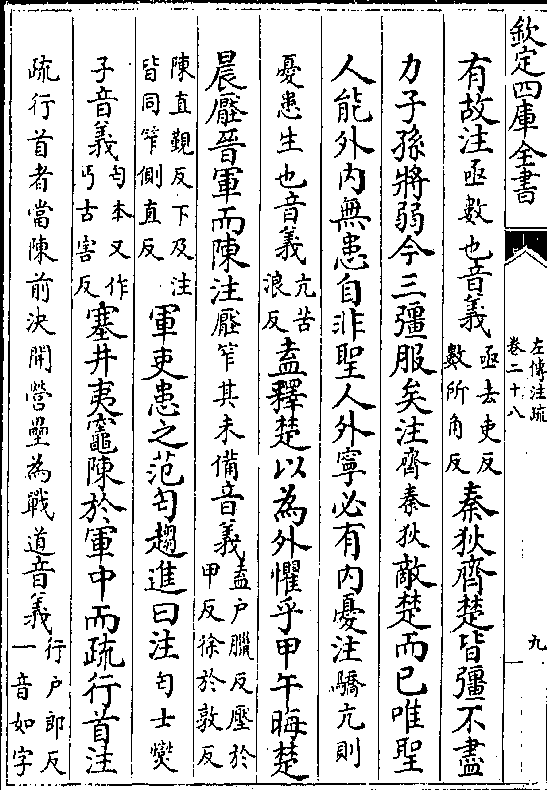 欽定四庫全書
左傳注疏
卷二十八
九
有故注亟數也音義亟去吏反數所角反秦狄齊楚皆彊不盡
力子孫將弱今三彊服矣注齊秦狄敵楚而已唯聖
人能外内無患自非聖人外寧必有内憂注驕亢則
憂患生也音義亢苦浪反盍釋楚以為外懼乎甲午晦楚
晨壓晉軍而陳注壓笮其未備音義盍户臘反壓於甲反徐於敦反
陳直覲反下及注皆同笮側直反軍吏患之范匄趨進曰注匄士燮
子音義匄本又作丐古害反塞井夷竈陳於軍中而疏行首注
疏行首者當陳前決開營壘為戰道音義行户郎反一音如字